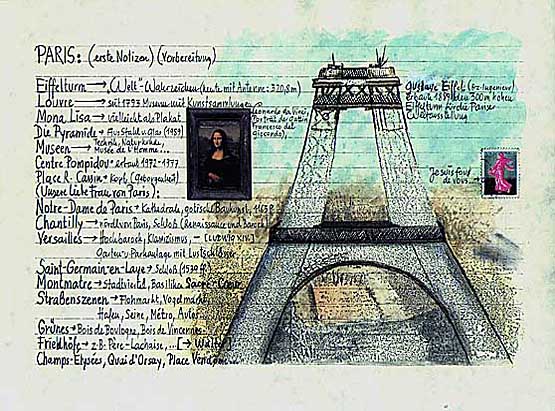 PARIS: (erste Notizen) (Vorbereitung)
Eiffelturm → „Welt"-Wahrzeichen (heute mit Antenne: 320,8m)
Louvre → seit 1793 Museum mit Kunstsammlungen
Mona Lisa → vielleicht als Plakat
Leonardo da Vinci
Porträt der Gattin
Francesco del
Giocondo)
Die Pyramide → aus Stahl u. Glas (1989)
Museen → Technik, Naturkunde,
Musée de l'Homme...
Centre Pompidou → erbaut 1972-1977
Place R. Cassin → Kopf (Geborgenheit)
(Unsere liebe Frau von Paris):
Notre-Dame de Paris → Kathedrale, gotische Baukunst, 1163
Chantilly → nördl. von Paris, Schloß (Renaissance und Barock)
Versailles → Hochbarock, Klassizismus,
Garten- u. Parkanlage mit Lustschlösser
Saint-Germain-en-Laye → Schloß (1539
Montmatre → Stadtviertel, Basilika Sacré-Cœur
Straßenszenen → Flohmarkt, Vogelmarkt
Hafen, Seine, Métro, Autos...
Grünes → Bois de Boulogne, Bois de Vincennes
Friedhöfe → z.B. Père-Lachaise, ...
Champs-Elysées, Quai d'Orsay, Place Vendôme...
Gustave Eiffel (Bz-Ingenieur)
erbaute 1889 den 300 m hohen
Eiffelturm für die Pariser
Weltausstellung
Je suis fou
de vous...